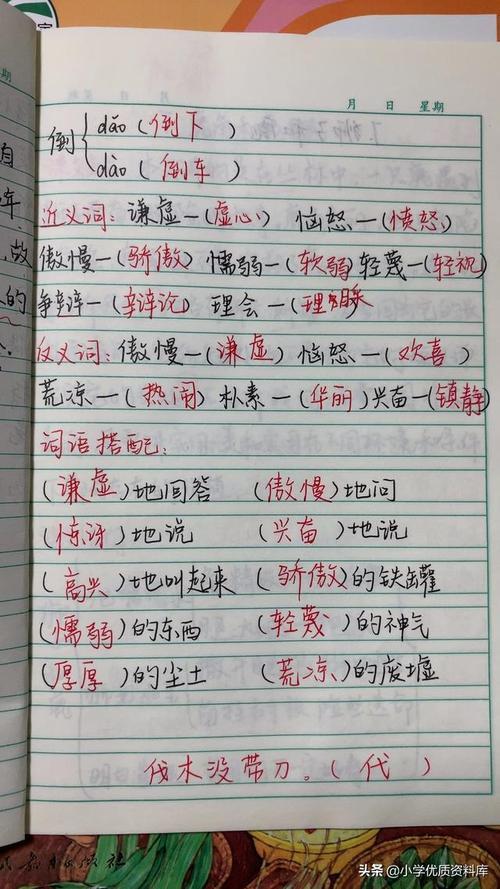 月 日 星期
倒 dǎo (倒下)
dào (倒车)
近义词：谦虚—(虚心) 恼怒—(愤怒)
傲慢—(骄傲) 懦弱—(软弱) 轻蔑—(轻视)
争辩—(辩论) 理会—(理睬)
反义词：傲慢—(谦虚) 恼怒—(欢喜)
荒凉—(热闹) 朴素—(华丽) 兴奋—(镇静)
词语搭配：
(谦虚)地回答 (傲慢)地问
(惊讶)地说 (兴奋)地说
(高兴)地叫起来 (骄傲)的铁罐
(懦弱)的东西 (轻蔑)的神气
(厚厚)的尘土 (荒凉)的废墟
伐木没带刀。(代)
头条 @小学优质资料库